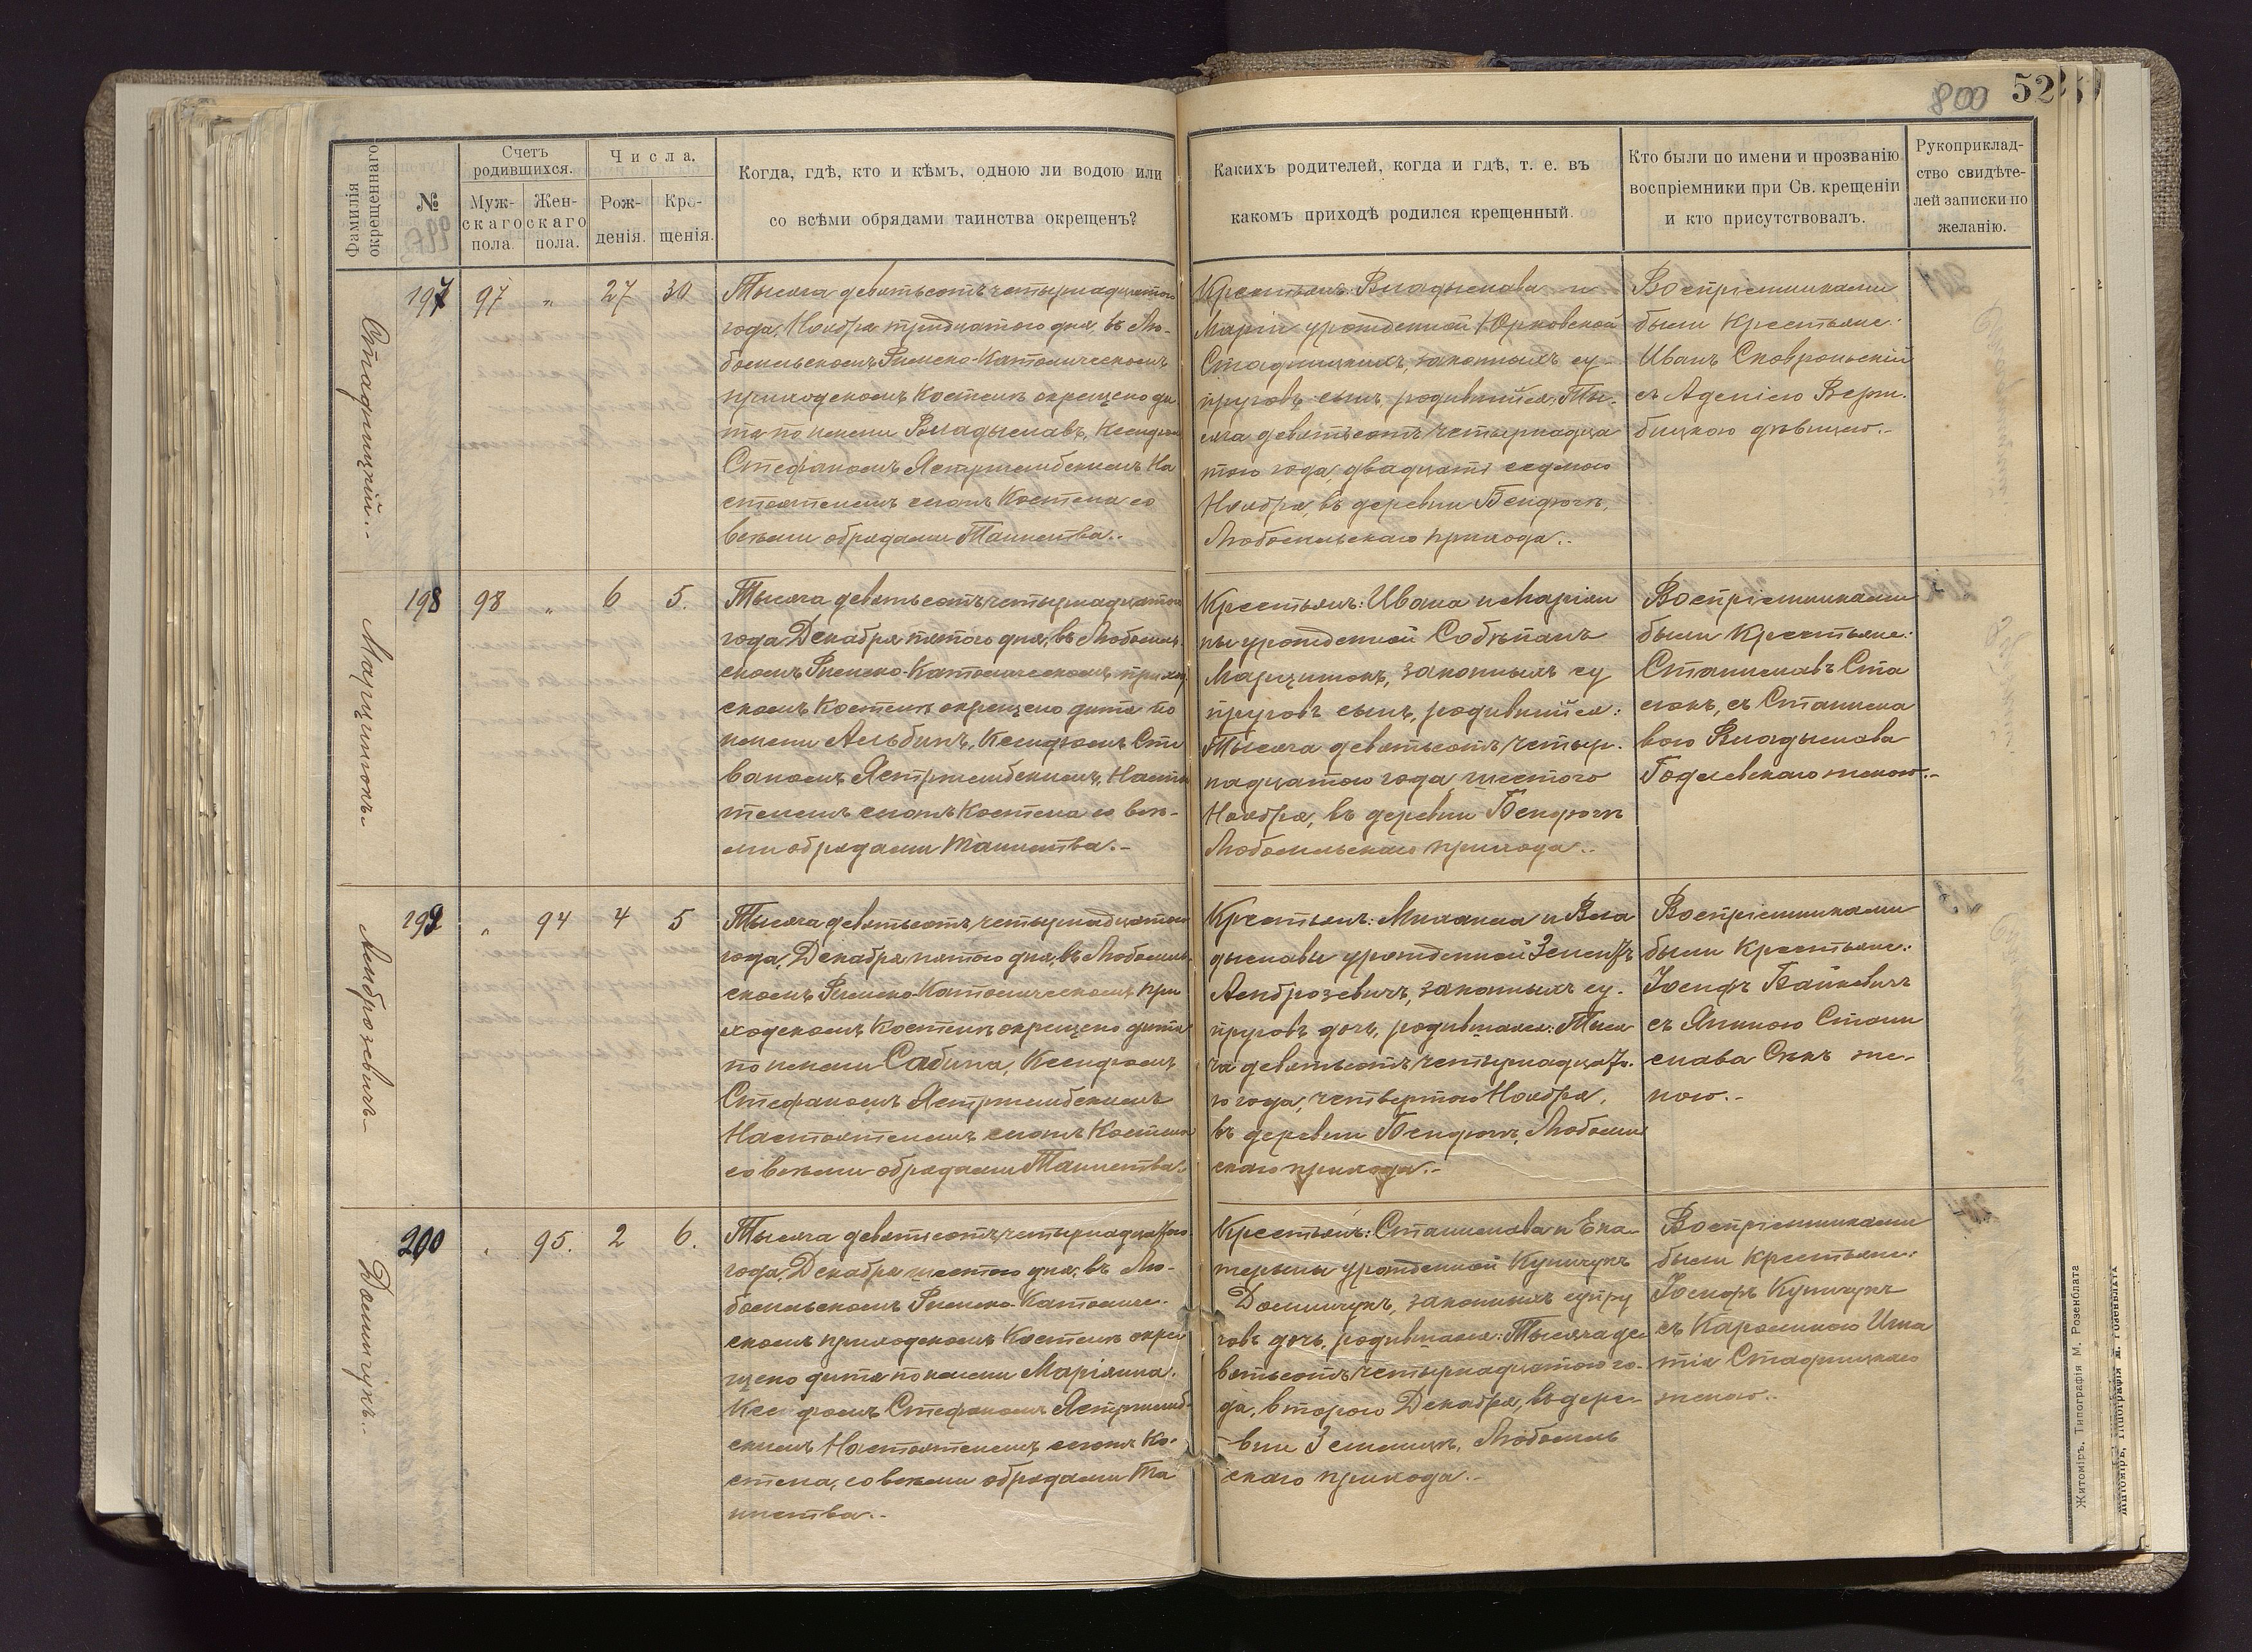 800 52
Фамилія окрещеннаго
№
Счетъ родившихся.
Муж-скаго пола.
Жен-скаго пола.
Числа.
Рож-денія.
Кре-щенія.
Когда, гдѣ, кто и кѣмъ, одною ли водою или
со всѣми обрядами таинства окрещенъ?
Какихъ родителей, когда и гдѣ, т. е. въ
какомъ приходѣ родился крещенный.
Кто были по имени и прозванію
воспріемники при Св. крещеніи
и кто присутствовалъ.
Рукоприклад-
ство свидѣте-
лей записки по
желанію.
Стадницкій.
197 97 " 27 30
Тысяча девятьсотъ четырнадцатого
года, Ноября тридцатого дня, въ Лю-
бомльскомъ Римско-Католическомъ
приходскомъ Костелѣ окрещено ди
тя по имени Владыславъ, Ксендзомъ
Стефаномъ Ястржембскимъ На
стоятелемъ сего Костела со
всѣми обрядами Таинства.
Крестьянъ Владыслава и
Маріи урожденной Юрковской
Стадницкихъ, законныхъ су-
пруговъ сынъ, родившійся Ты-
сяча девятьсотъ четырнадца
того года, двадцать седьмого
Ноября, въ деревни Бендюгѣ,
Любомльскаго прихода.
Воспріемниками
были Крестьяне:
Иванъ Сковроньскій
съ Аделіею Верж-
бицкою дѣвицею.
Марцинюкъ
198 98 " 6 5.
Тысяча девятьсотъ четырнадцатого
года Декабря пятого дня, въ Любомль
скомъ Римско-Католическомъ приход
скомъ Костелѣ окрещено дитя по
имени Альбинъ, Ксендзомъ Сте
ваномъ Ястржембскимъ, Настоя
телемъ сего Костела со всѣ-
ми обрядами Таинства.-
Крестьянъ: Ивана и Маріян
ны урожденной Собѣпанъ
Марцинюкъ, законныхъ су
пруговъ сынъ, родившійся:
Тысяча девятьсотъ четыр-
надцатого года, шестого
Ноября, въ деревни Бендюгѣ
Любомльскаго прихода.
Воспріемниками
были Крестьяне:
Станиславъ Ста
сюкъ, съ Станисла
вою Владыслава
Годлевскаго женою.-
Амброзевичъ
199 " 94 4 5
Тысяча девятьсотъ четырнадцатого
года, Декабря пятого дня, въ Любомль
скомъ Римско-Католическомъ при
ходскомъ Костелѣ окрещено дитя
по имени Сабина, Ксендзомъ
Стефаномъ Ястржембскимъ
Настоятелемъ сего Костела
со всѣми обрядами Таинства.
Крестьянъ: Михаила и Вла
дыславы урожденной
Амброзевичъ, законныхъ су-
пруговъ дочь, родившаяся: Тыся
ча девятьсотъ четырнадцато-
го года, четвертого Ноября,
въ деревни Бендюгѣ, Любомль
скаго прихода.-
Воспріемниками
были Крестьяне:
Іосифъ Байкевичъ
съ Яниною Стани
слава Сѣкъ же-
ною.-
Доминчукъ.
200 " 95. 2 6.
Тысяча девятьсотъ четырнадцатого
года, Декабря шестого дня, въ Лю-
бомльскомъ Римско-Католиче-
скомъ приходскомъ Костелѣ окре
щено дитя по имени Маріянна,
Ксендзомъ Стефаномъ Ястржемб-
скимъ Настоятелемъ сего Ко-
стела, со всѣми обрядами Та
инства.-
Крестьянъ: Станислава и Ека-
терыны урожденной Купчукъ
Доминчукъ, законныхъ супру
говъ дочь, родившаяся: Тысяча де
вятьсотъ четырнадцатого го-
да, второго Декабря, въ дере-
вни Земмицѣ, Любомль
скаго прихода.-
Воспріемниками
были крестьяне:
Іосифъ Купчукъ
съ Каролиною Игна
тія Стадницкаго
женою.
Житоміръ. Типографія М. Розенблата
Житоміръ, Типографія М. Розенблата